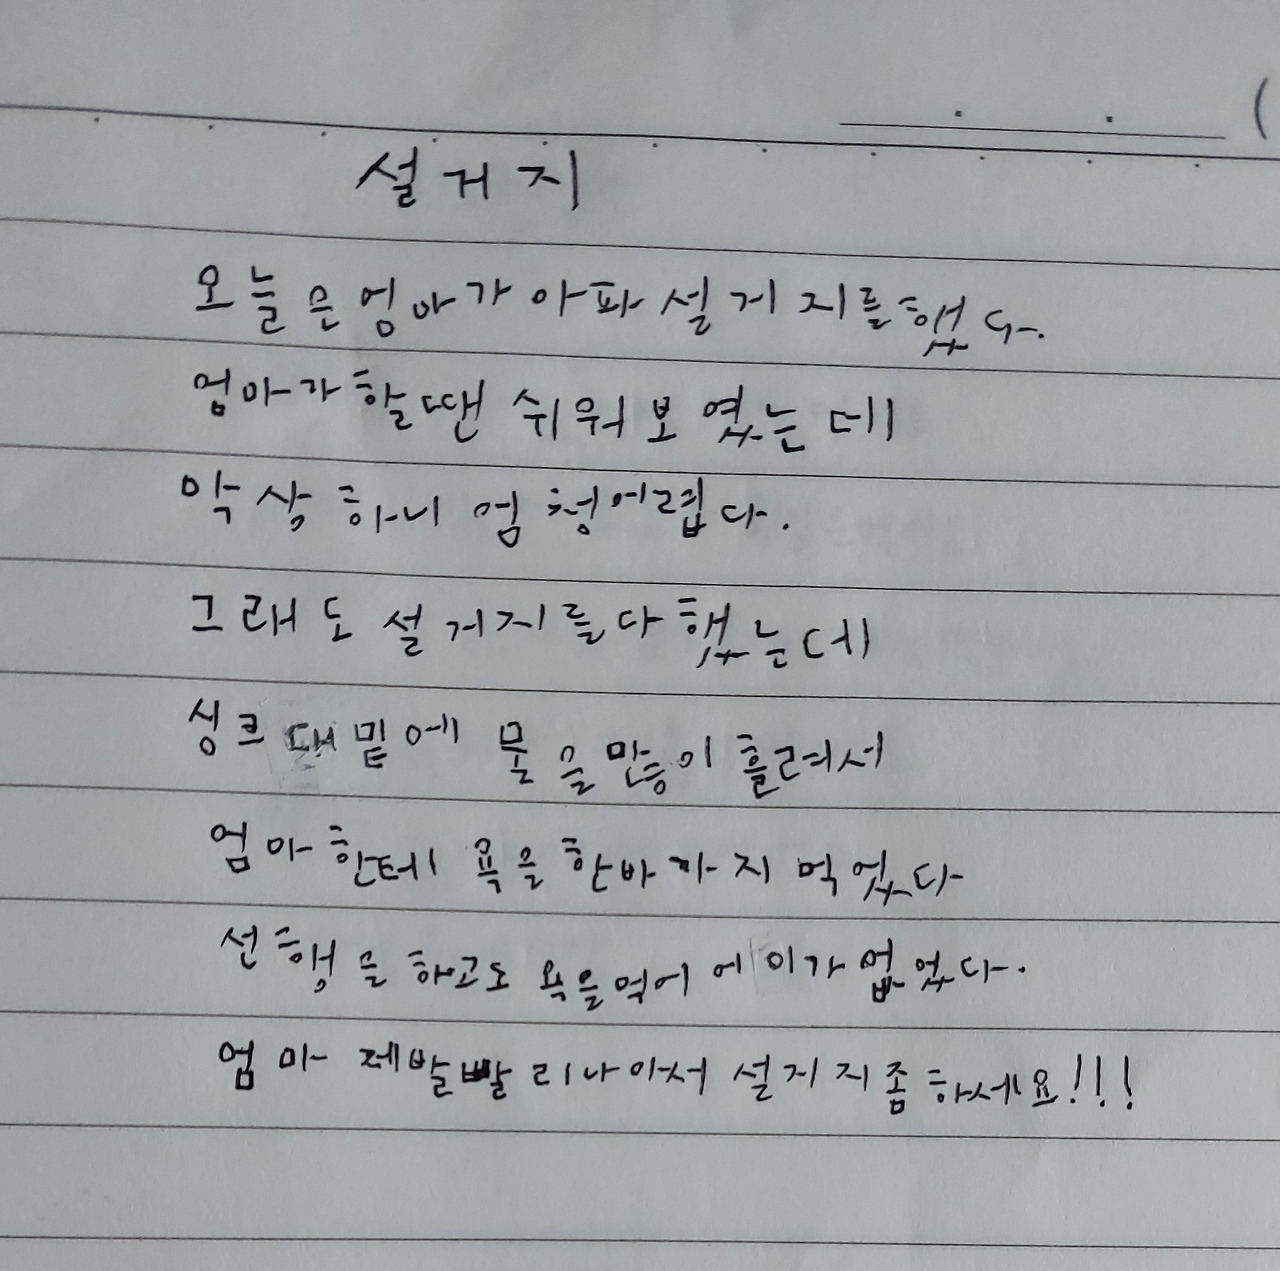 설거지
오늘은 엄마가 아파 설거지를 했다.
엄마가 할땐 쉬워 보였는데
막상 하니 엄청 어렵다.
그래도 설거지를 다 했는데
싱크대 밑에 물을 만등이 흘려서
엄마 한테 욕을 한바가지 먹었다
선행을 하고도 욕을 먹어 어이가 없었다.
엄마 제발 빨리 나아서 설거지 좀 하세요!!!